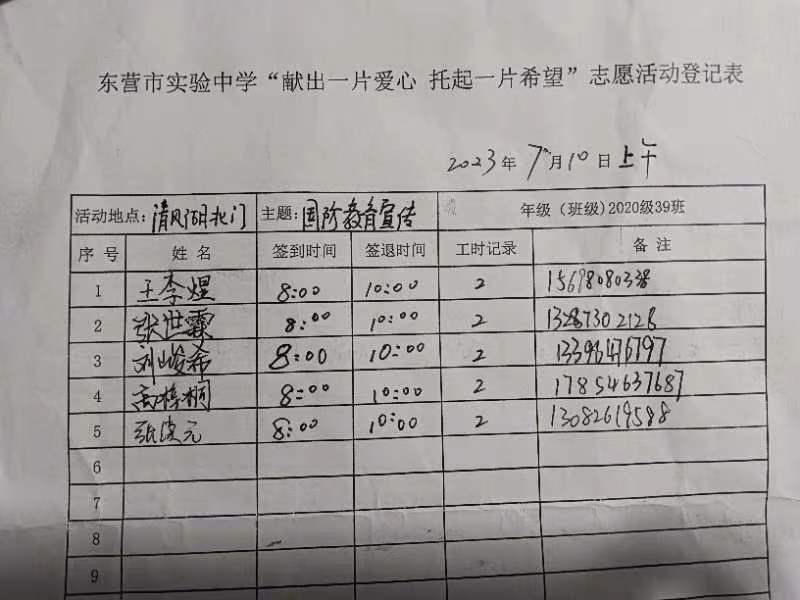 东营市实验中学“献出一片爱心 托起一片希望”志愿活动登记表
2023年 7月10日上午
活动地点：清风湖北门 主题：国防教育宣传 年级（班级）2020级39班
序号 姓名 签到时间 签退时间 工时记录 备注
1 王李煜 8:00 10:00 2 15698080338
2 张世霖 8:00 10:00 2 13287302128
3 刘峻希 8:00 10:00 2 13396476797
4 高梓桐 8:00 10:00 2 17854637687
5 张 元 8:00 10:00 2 13082619588
6
7
8
9